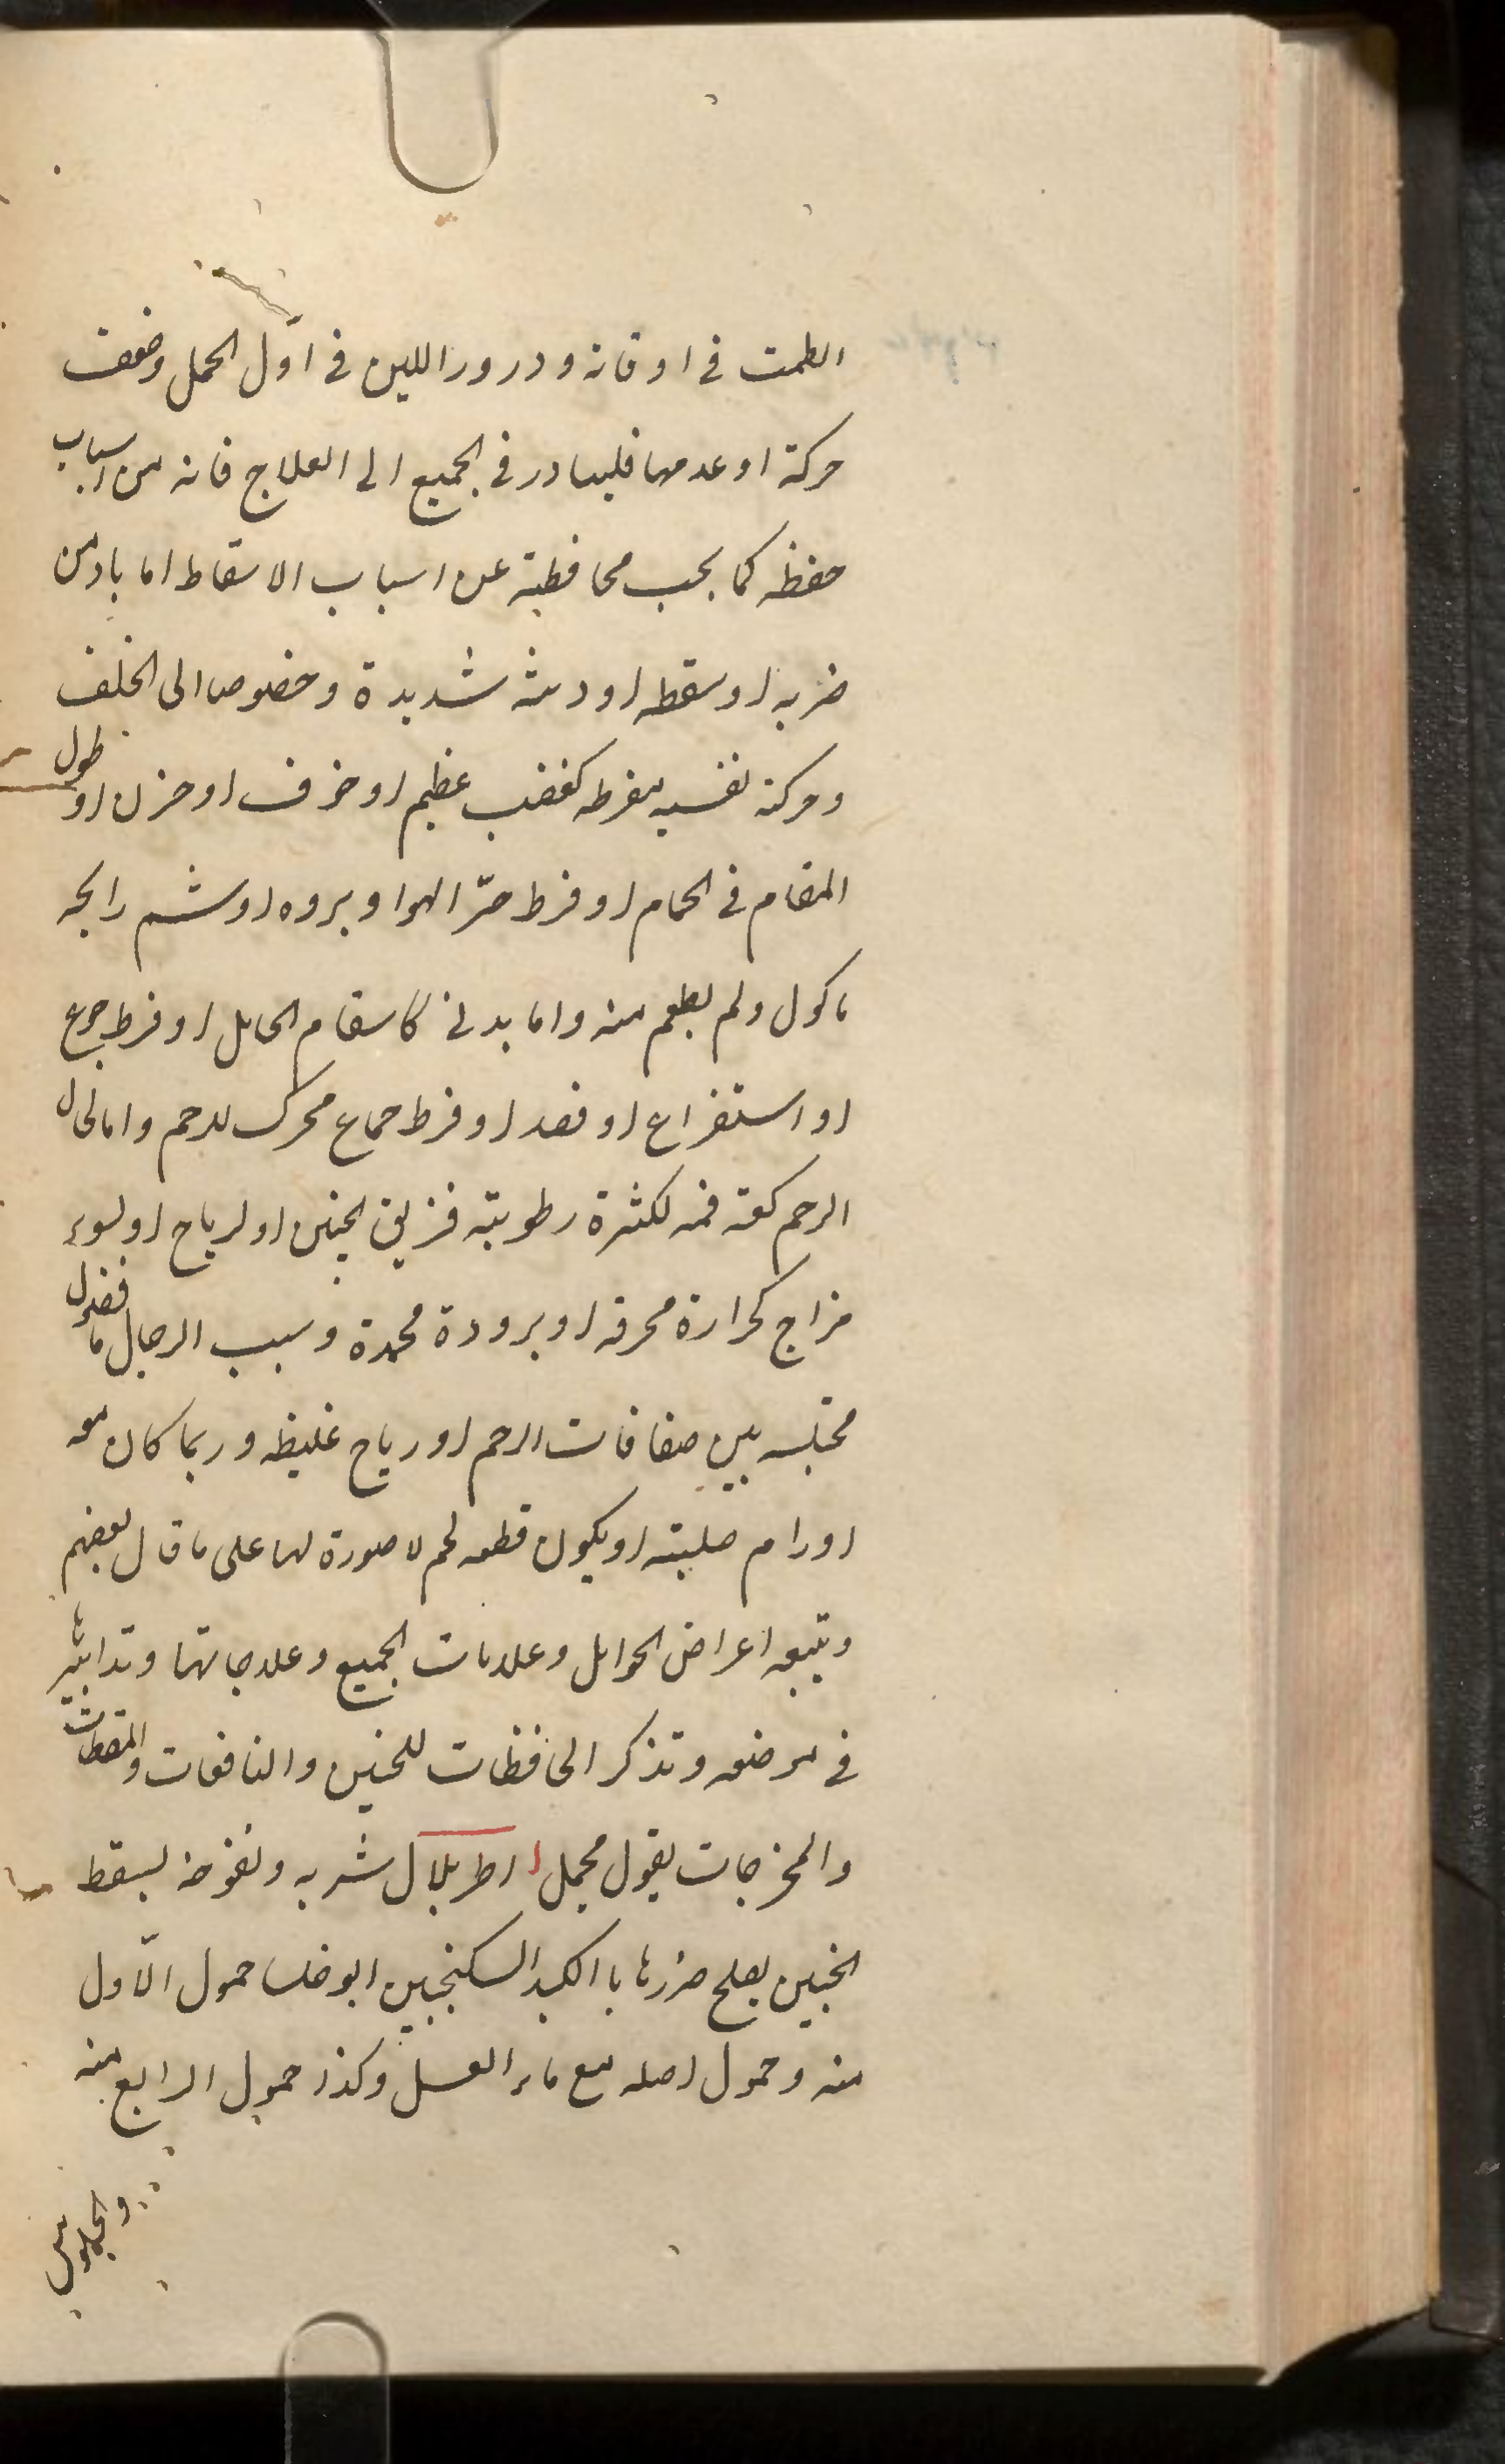 الطمث فى اوقاته ودرور اللبن فى اوّل الحمل وضعف
حركة او عدمها فليبادر فى الجميع الى العلاج فانه من اسباب
حفظه كما يجب محافظته عن اسباب الاسقاط اما باد من
ضربه او سقطه او وثبه شديدة وخصوصا الى الخلف
وحركة نفسيه مفرطه كغضب عظيم او خوف او حزن او طول
المقام فى الحمام او فرط حرّ الهوا وبرده او شم رايحه
ماكول ولم يطعم منه واما بدنى كاسقام الحامل او فرط جوع
او استفراغ او فصد او فرط جماع محرك للرحم واما لحال
الرحم كسعة فمه لكثرة رطوبته فيزلق الجنين او لرياح او لسوء
مزاج كحرارة محرقه او برودة مجمدة وسبب الرجا اما فضول
محتبسه بين صفاقات الرحم او رياح غليظه وربما كان معه
اورام صلبته او يكون قطعه لحم لا صورة لها على ما قال بعضهم
ويتبعه اعراض الحوامل وعلامات الجميع وعلاجاتها وتدابيرها
فى موضعه وتذكر الحافظات للجنين والنافعات والمسقطات
والمخرجات بقول مجمل اطريلال شربه ونفوخه يسقط
الجنين يصلح ضررها بالكبد السكنجبين ابو خلسا حمول الاّول
منه وحمول اصله مع ماء العسل وكذا حمول الرابع منه
والجلوس